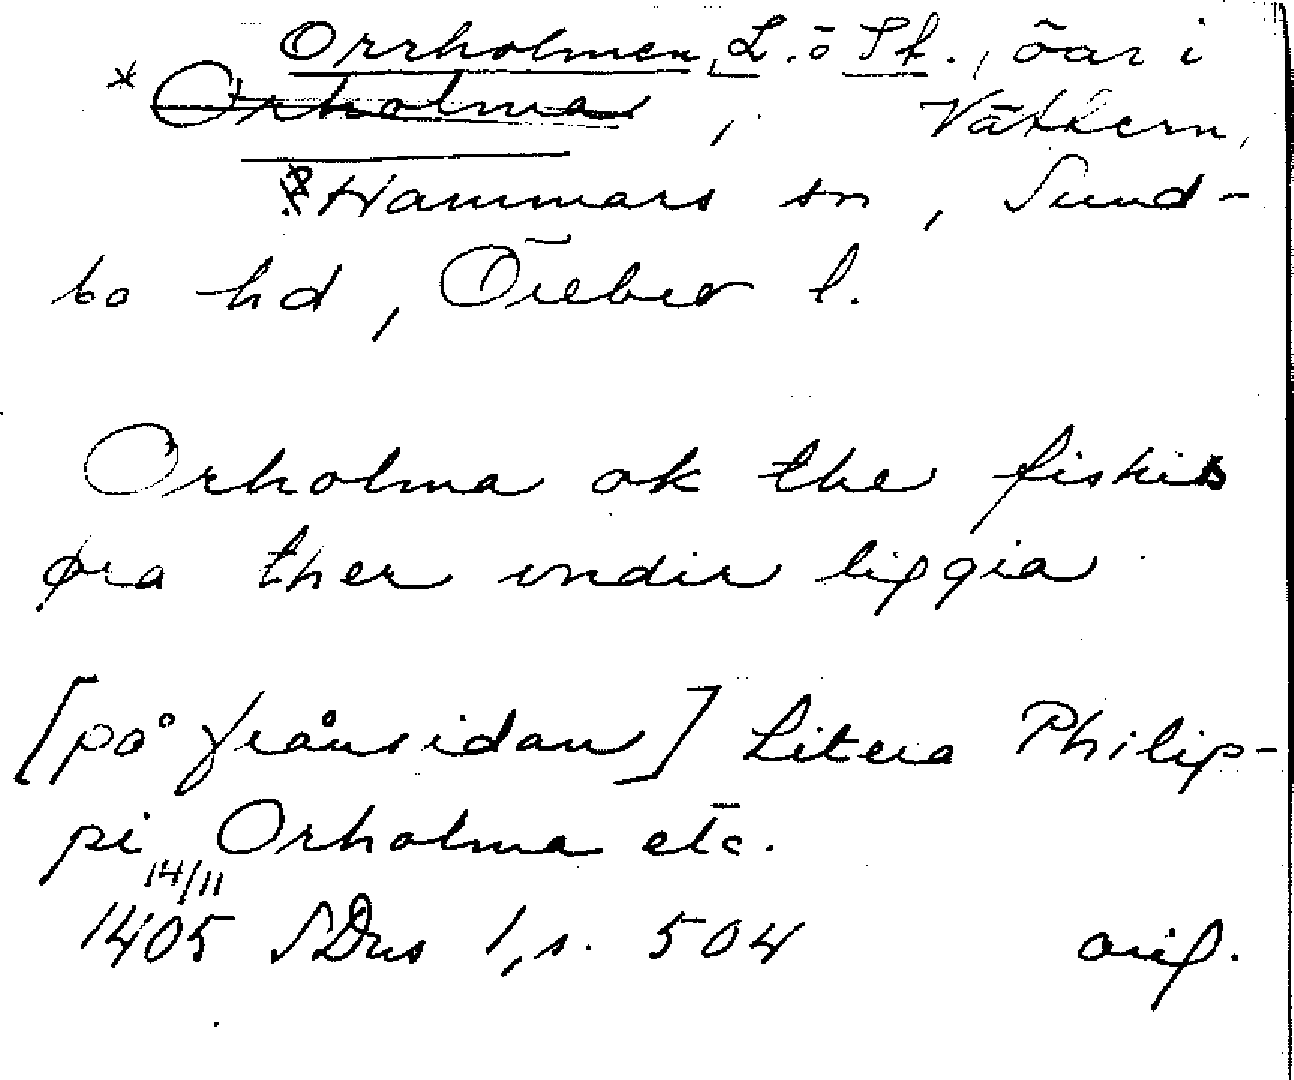 Orrholmen, L. o St., öar i
* Orholma, Vättern,
Hammars sn, Sund-
bo hd, Örebro l.
Orholma ok the fiskis
øra ther vndir liggia
[på frånsidan] Litera Philip-
pi Orholma etc.
14/11
1405 SDns 1, s. 504 orig.